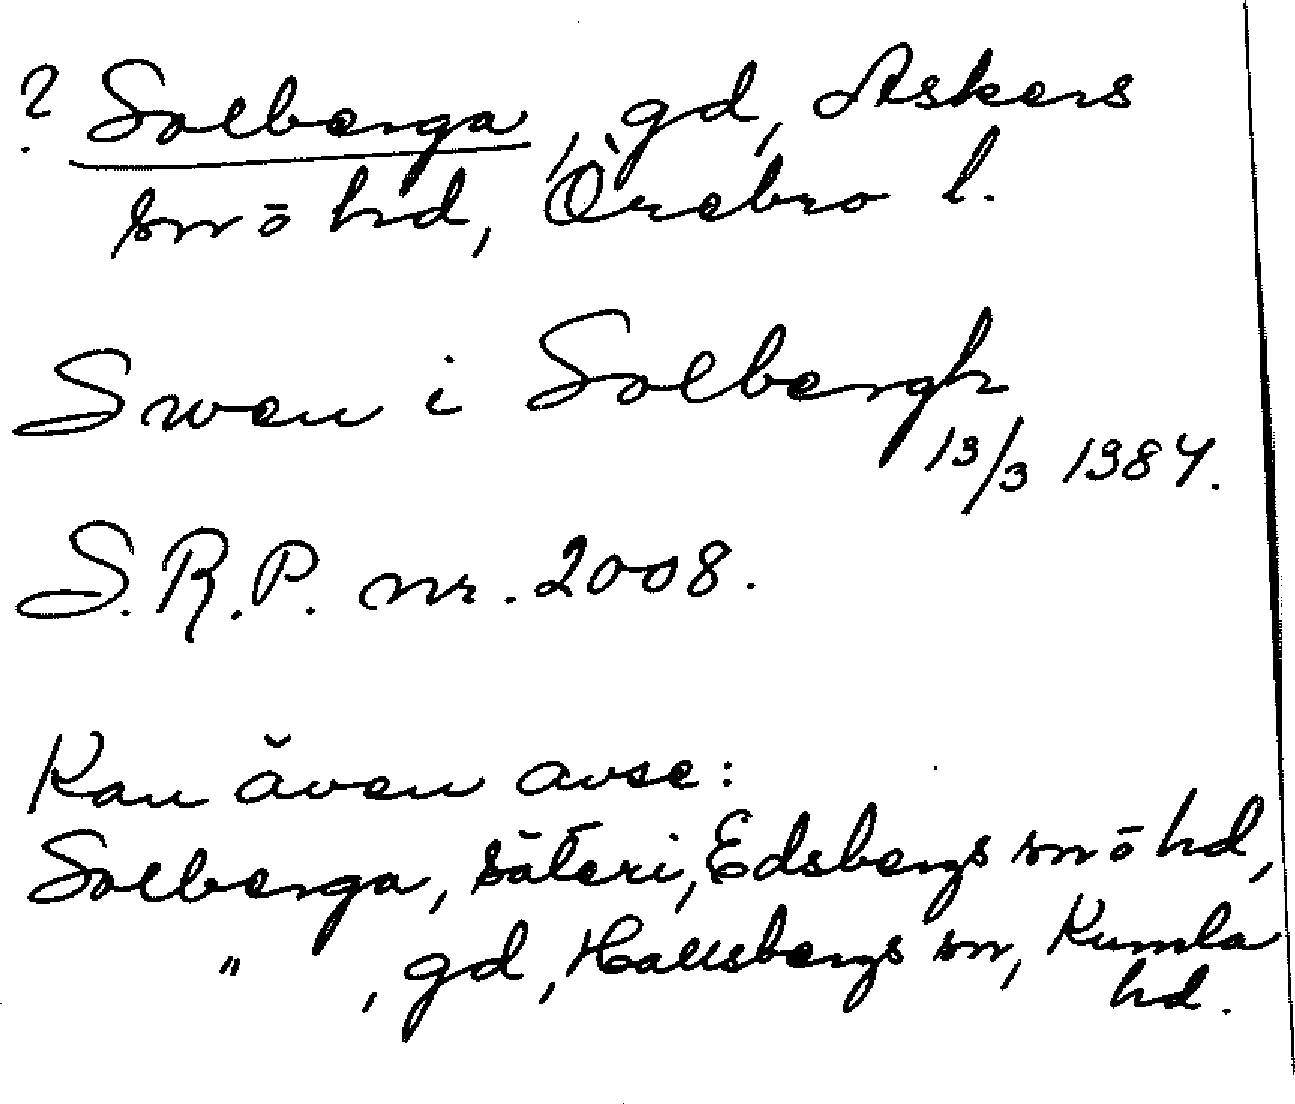 ? Solberga, gd, Askers
sn o hd, Örebro l.
Swen i Solbergh
13/3 1384.
S.R.P. nr. 2008.
Kan även avse:
Solberga, säteri, Edsbergs sn o hd,
" , gd, Hallsbergs sn, Kumla
hd.